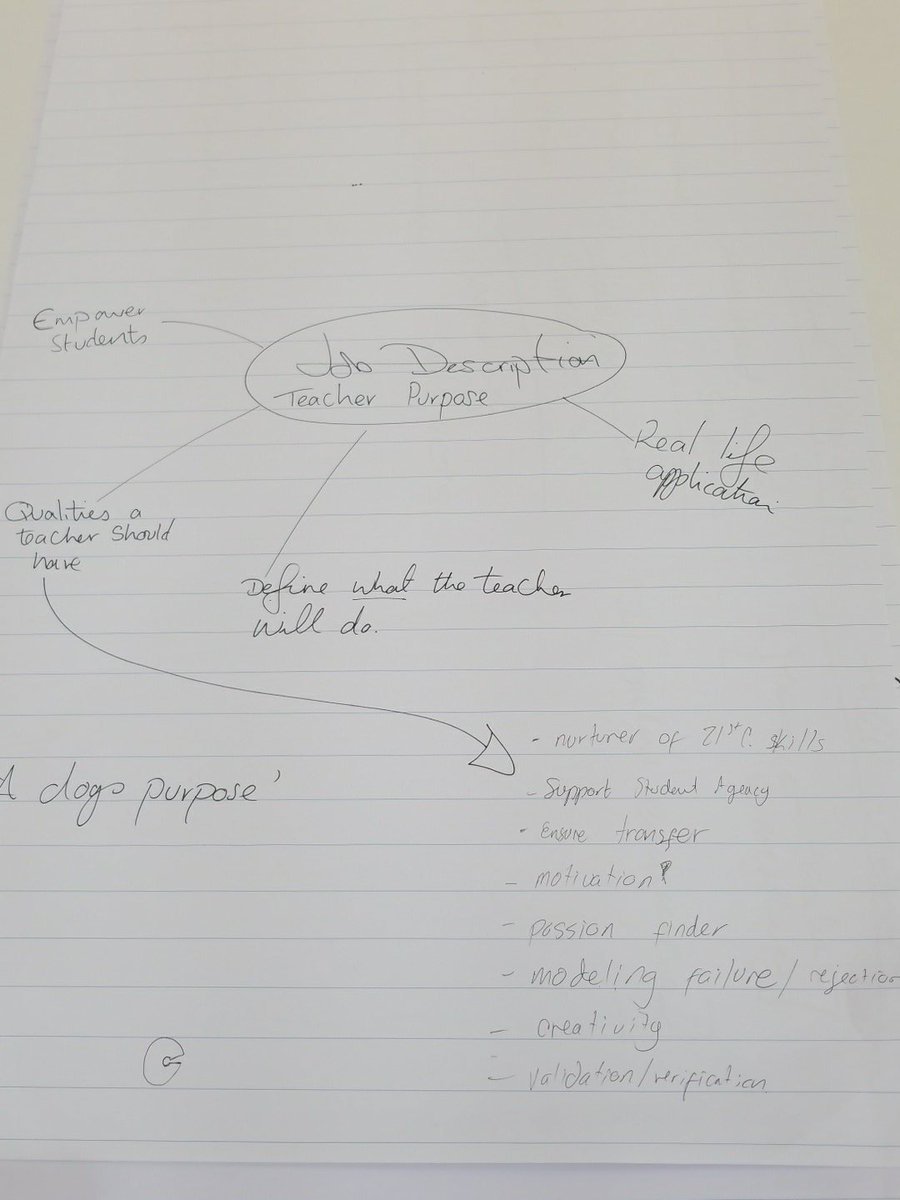 Empower
Students
Job Description
Teacher Purpose
Real life
application
Qualities a
teacher should
have
Define what the teacher
will do.
- nurturer of 21st C. skills
- Support Student Agency
- Ensure transfer
- motivation
- passion finder
- modeling failure/rejection
- creativity
- validation/verification
A dogs purpose'